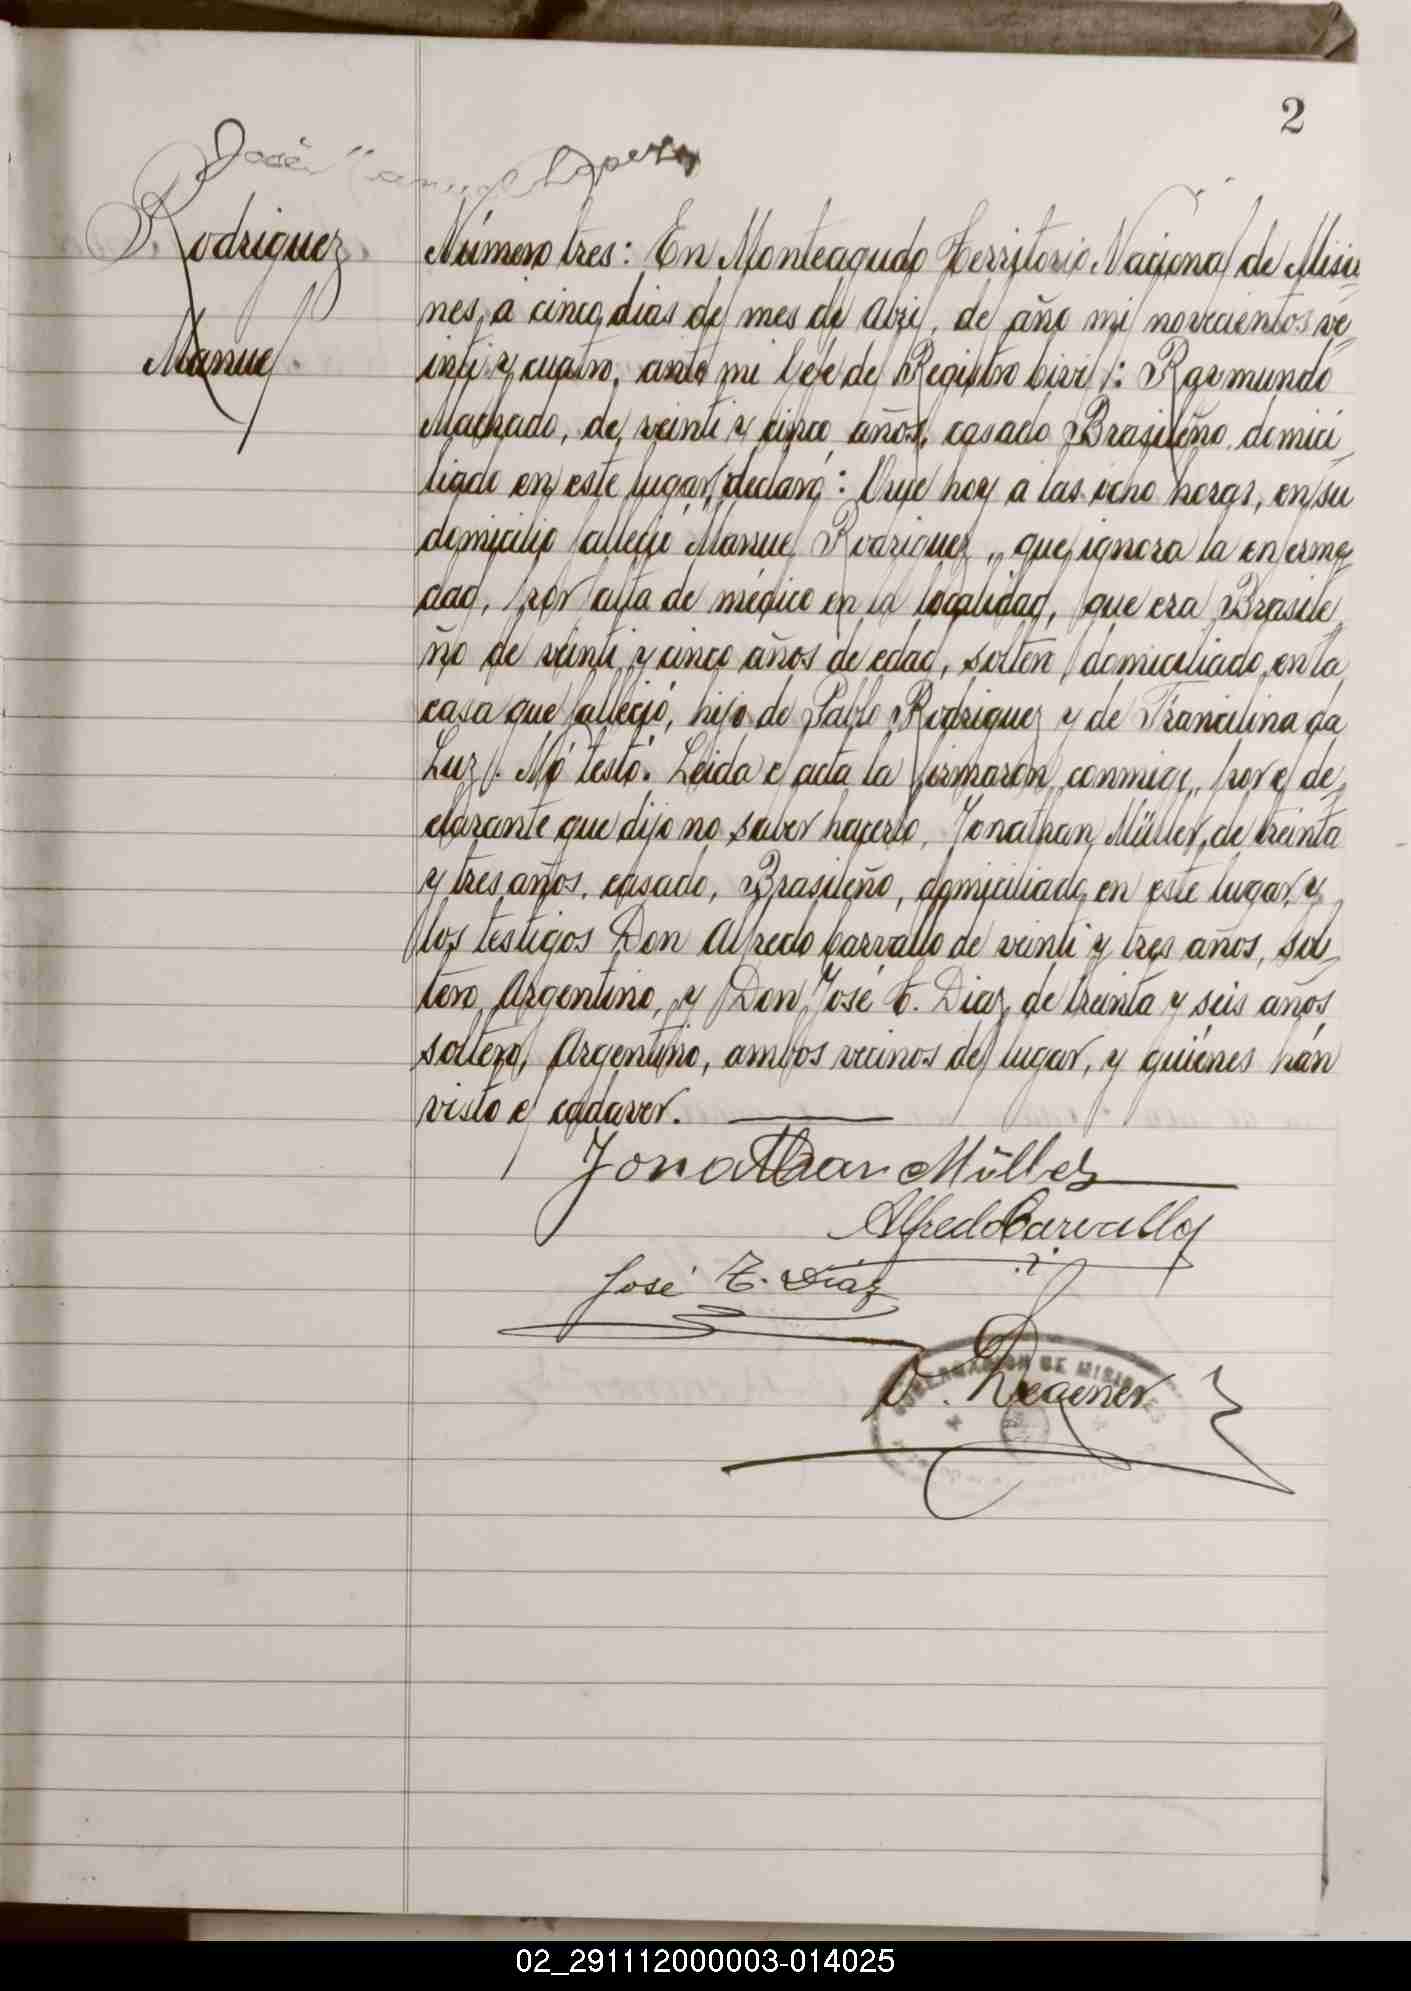 2
José Manuel
Rodriguez
Manuel.
Número tres: En Monteagudo Territorio Nacional de Misio
nes, a cinco dias del mes de Abril, del año mil novecientos ve
inti y cuatro, ante mi Jefe del Registro Civil: Raymundo
Machado, de veinti y cinco años, casado Brasileño, domici
liado en este lugar, declaró: Que hoy a las ocho horas, en su
domicilio falleció Manuel Rodriguez, que ignora la enferme
dad, por falta de médico en la localidad, que era Brasile
ño de veinti y cinco años de edad, soltero, domiciliado en la
casa que falleció, hijo de Pablo Rodriguez y de Francilina da
Luz. Nó testó. Leida el acta la firmaron conmigo, por el de
clarante que dijo no saber hacerlo, Jonathan Müller, de treinta
y tres años, casado, Brasileño, domiciliado en este lugar, y
los testigos Don Alfredo Carvallo de veinti y tres años, sol
tero, Argentino, y Don José T. Diaz, de treinta y seis años
soltero, Argentino, ambos vecinos del lugar, y quiénes hán
visto el cadaver.
Jonathan Müller
Alfredo Carvallo
José T. Díaz
O. Degener
GOBERNACION DE MISIONES
02_291112000003-014025